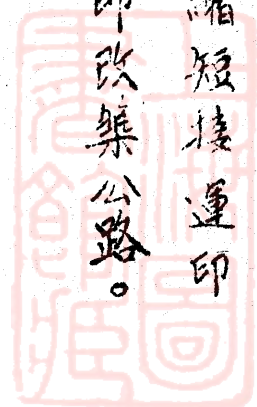 縮短接運印
印改築公路。